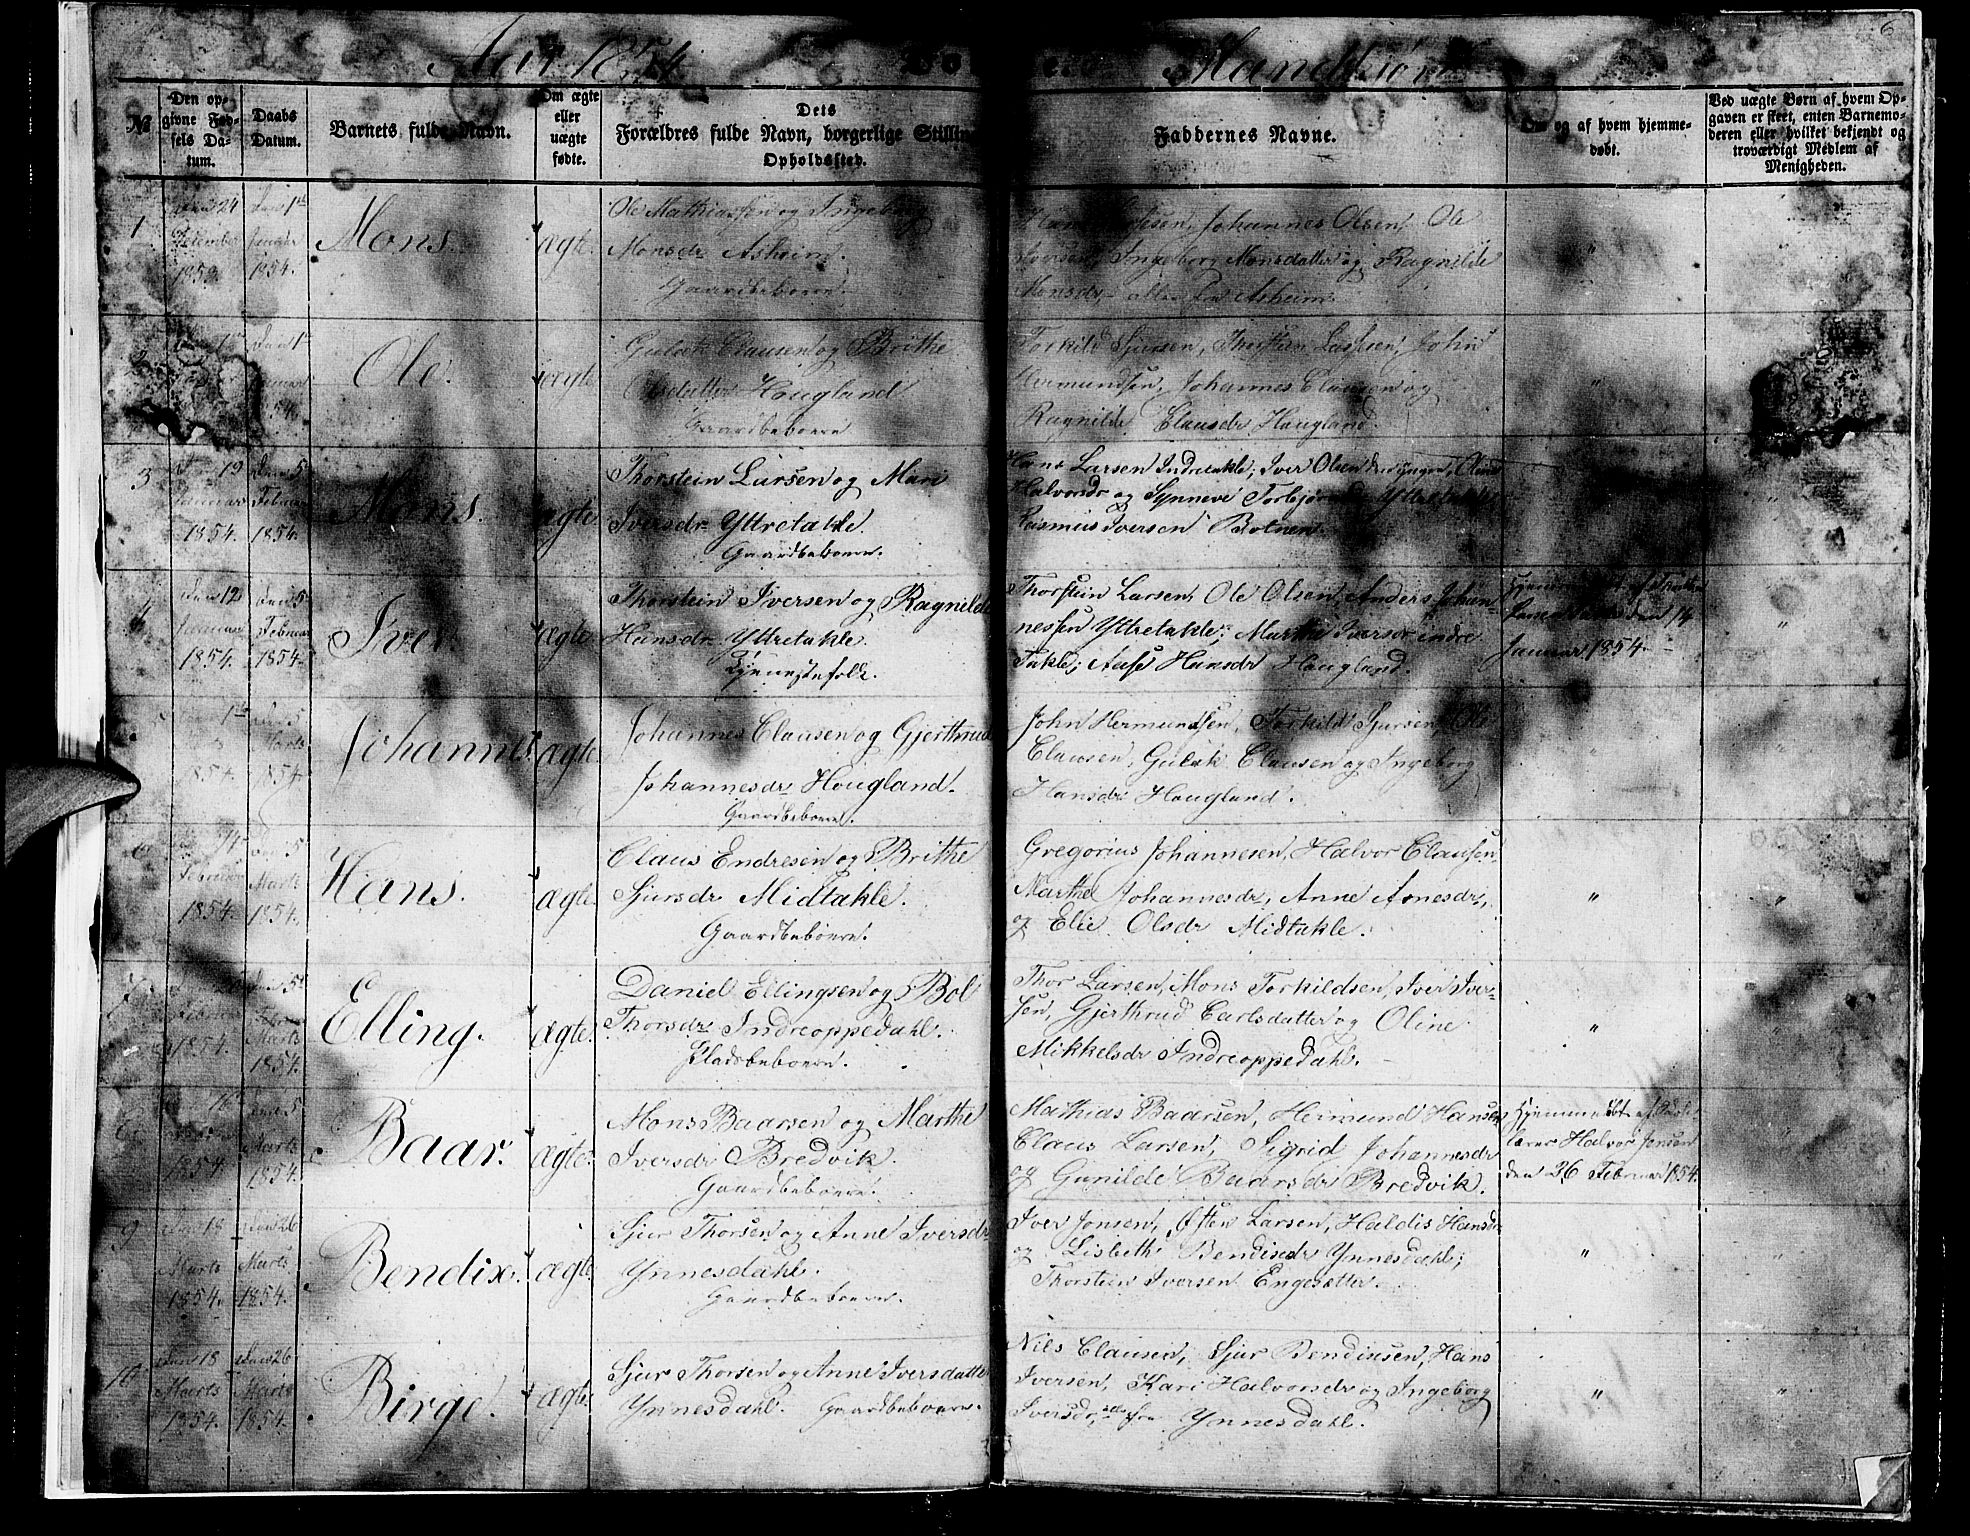 6
Aar 1854. Mandkjøn
№
Den op-
givne Fød-
sels Da-
tum.
Daabs
Datum.
Barnets fulde Navn.
Om ægte
eller
uægte
fødte.
Dets
Forældres fulde Navn, borgerlige Stilling
Opholdssted.
Faddernes Navne.
Om og af hvem hjemme-
døbt.
Ved uægte Børn af hvem Op-
gaven er skeet, enten Barnemo-
deren eller hvilket bekjendt og
troværdigt Medlem af
Menigheden.
1
24
December
1853.
1854.
Mons.
ægte.
Ole Mathiassen og Ingeborg
Monsdr Asheim.
Gaardbeboere.
Johannes Olsen, Ole
Iversen, Ingeborg Monsdatter og Ragnilde
Monsdr alle fra Asheim.
"
2
Januar
54.
Ole.
ægte
Gulak Clausen og Brithe
Olsdatter Hougland
Gaardbeboere
Torkild Sjursen, Thorstein Larsen, John
Hermundsen, Johannes Clausen og
Ragnilde Clausdr Hougland.
"
3
19
Januar
1854.
Den 5
Februar
1854.
Mons.
ægte
Thorstein Larsen og Mari
Iversdr Yttretakle.
Gaardbeboere.
Hans Larsen Indretakle; Iver Olsen den yngre, Oline
Halvorsdr og Synneve Torbjørnsdr Yttretakle
Rasmus Iversen Botnen.
"
4
den 12
Januar
1854.
den 5
Februar
1854.
Iver.
ægte
Thorstein Iversen og Ragnilde
Hansdr Yttretakle.
Tjenestefolk.
Thorstein Larsen, Ole Olsen, Anders Johan-
nessen Yttretakle; Marthe Iversdr indre
Takle; Aase Hansdr Hougland.
den 14
Januar 1854.
"
1854.
5
Marts
1854.
Johannes.
ægte
Johannes Clausen og Gjerthrud
Johannesdr Hougland.
Gaardbeboere.
John Hermundsen, Torkild Sjursen, Ole
Clausen, Gulak Clausen og Ingeborg
Hansdr Hougland.
"
6
14
Februar
1854.
den 5
Marts
1854.
Hans.
ægte.
Claus Endresen og Brithe
Sjursdr Midtakle.
Gaardbeboere.
Gregorius Johannesen, Halvor Clausen,
Marthe Johannesdr, Anne Arnesdr,
og Elie Olsdr Midtakle.
"
"
7
Februar
1854.
den 5
Marts
1854.
Elling.
ægte.
Daniel Ellingsen og Bol
Thorsdr Indreoppedahl.
Pladsbeboere.
Thor Larsen, Mons Torkildsen, Iver Iver-
sen, Gjerthrud Carlsdatter og Oline
Mikkelsdr Indreoppedahl.
"
"
8
16
1854.
den 5
Marts
1854.
Baar.
ægte.
Mons Baarsen og Marthe
Iversdr Bredvik.
Gaardbeboere.
Mathias Baarsen, Hermund Hansen,
Claus Larsen, Sigrid Johannesdr
og Gunilde Baarsdr Bredvik.
Hjemmedøbt af Skole-
lærer Halvor Jensen
den 26 Februar 1854.
"
9
den 18
Marts
1854.
den 26
Marts
1854.
Bendix.
ægte.
Sjur Thorsen og Anne Iversdr
Ynnesdahl.
Gaardbeboere.
Iver Jonsen, Østen Larsen, Haldis Hansdr
og Lisbeth Bendixdr Ynnesdahl;
Thorstein Iversen Engesætter.
"
"
10
den 18
Marts
1854.
den 26
Marts
1854.
Børge.
ægte.
Sjur Thorsen og Anne Iversdatter
Ynnesdahl. Gaardbeboere.
Nils Clausen, Sjur Bendixsen, Hans
Iversen, Kari Halvorsdr og Ingeborg
Iversdr, alle fra Ynnesdahl.
"
"